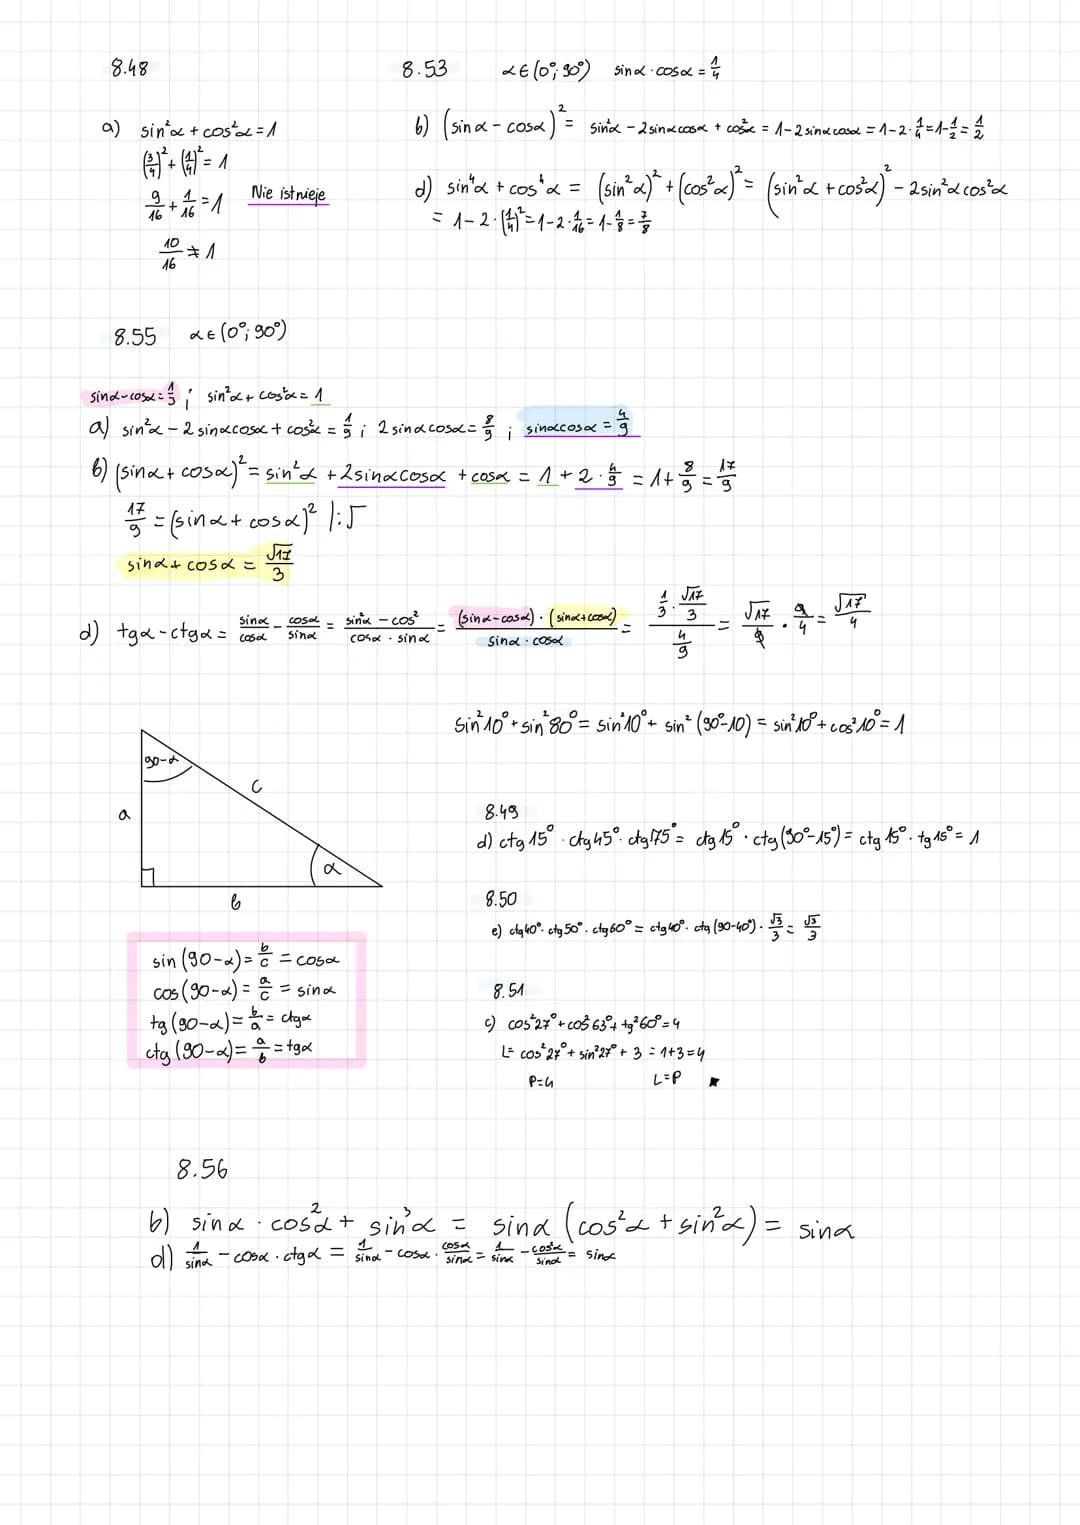 8.48
a) sin²α + cos²α = 1
(3/4)² + (1/4)² = 1
9/16 + 1/16 = 1 Nie istnieje
10/16 ≠ 1
8.53 α ∈ (0°; 90°) sinα · cosα = 1/4
b) (sinα - cosα)² = sin²α - 2 sinα cosα + cos²α = 1 - 2 sinα cosα = 1 - 2 · 1/4 = 1 - 1/2 = 1/2
d) sin⁴α + cos⁴α = (sin²α)² + (cos²α)² = (sin²α + cos²α)² - 2sin²α cos²α
= 1 - 2 · (1/4)² = 1 - 2 · 1/16 = 1 - 1/8 = 7/8
8.55 α ∈ (0°; 90°)
sinα - cosα = 1/3 ; sin²α + cos²α = 1
a) sin²α - 2 sinα cosα + cos²α = 1/9 ; 2 sinα cosα = 8/9 ; sinα cosα = 4/9
b) (sinα + cosα)² = sin²α + 2sinα cosα + cosα = 1 + 2 · 4/9 = 1 + 8/9 = 17/9
17/9 = (sinα + cosα)² |: √
sinα + cosα = √17/3
d) tgα - ctgα = sinα/cosα - cosα/sinα = (sin²α - cos²)/(cosα · sinα) = ((sinα - cosα) · (sinα + cosα))/(sinα · cosα) = (1/3 · √17/3)/(4/9) = √17/9 · 9/4 = √17/4
sin²10° + sin²80° = sin²10° + sin²(90°-10) = sin²10° + cos²10° = 1
90-α
c
a
α
b
sin(90-α) = b/c = cosα
cos(90-α) = a/c = sinα
tg(90-α) = b/a = ctgα
ctg(90-α) = a/b = tgα
8.49
d) ctg 15° · ctg 45° · ctg 75° = ctg 15° · ctg(90°-15°) = ctg 15° · tg 15° = 1
8.50
e) ctg 40° · ctg 50° · ctg 60° = ctg 40° · ctg(90-40°) · √3/3 = √3/3
8.51
c) cos²27° + cos²63° + tg²60° = 4
L = cos²27° + sin²27° + 3 = 1+3 = 4
P = 4 L = P
8.56
b) sinα · cos²α + sin³α = sinα (cos²α + sin²α) = sinα
d) 1/sinα - cosα · ctgα = 1/sinα - cosα · cosα/sinα = 1/sinα - cos²α/sinα = sinα